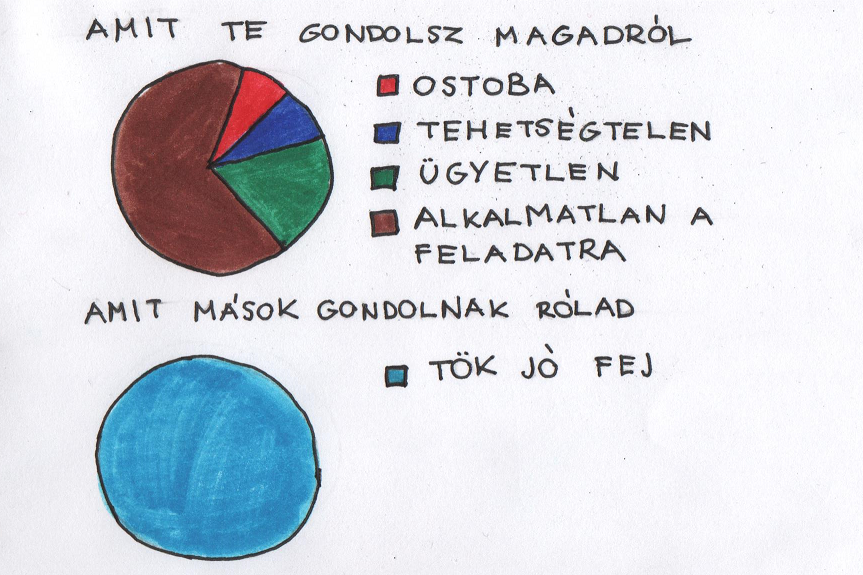 AMIT TE GONDOLSZ MAGADRÓL
OSTOBA
TEHETSÉGTELEN
ÜGYETLEN
ALKALMATLAN A
FELADATRA
AMIT MÁSOK GONDOLNAK RÓLAD
TÖK JÓ FEJ